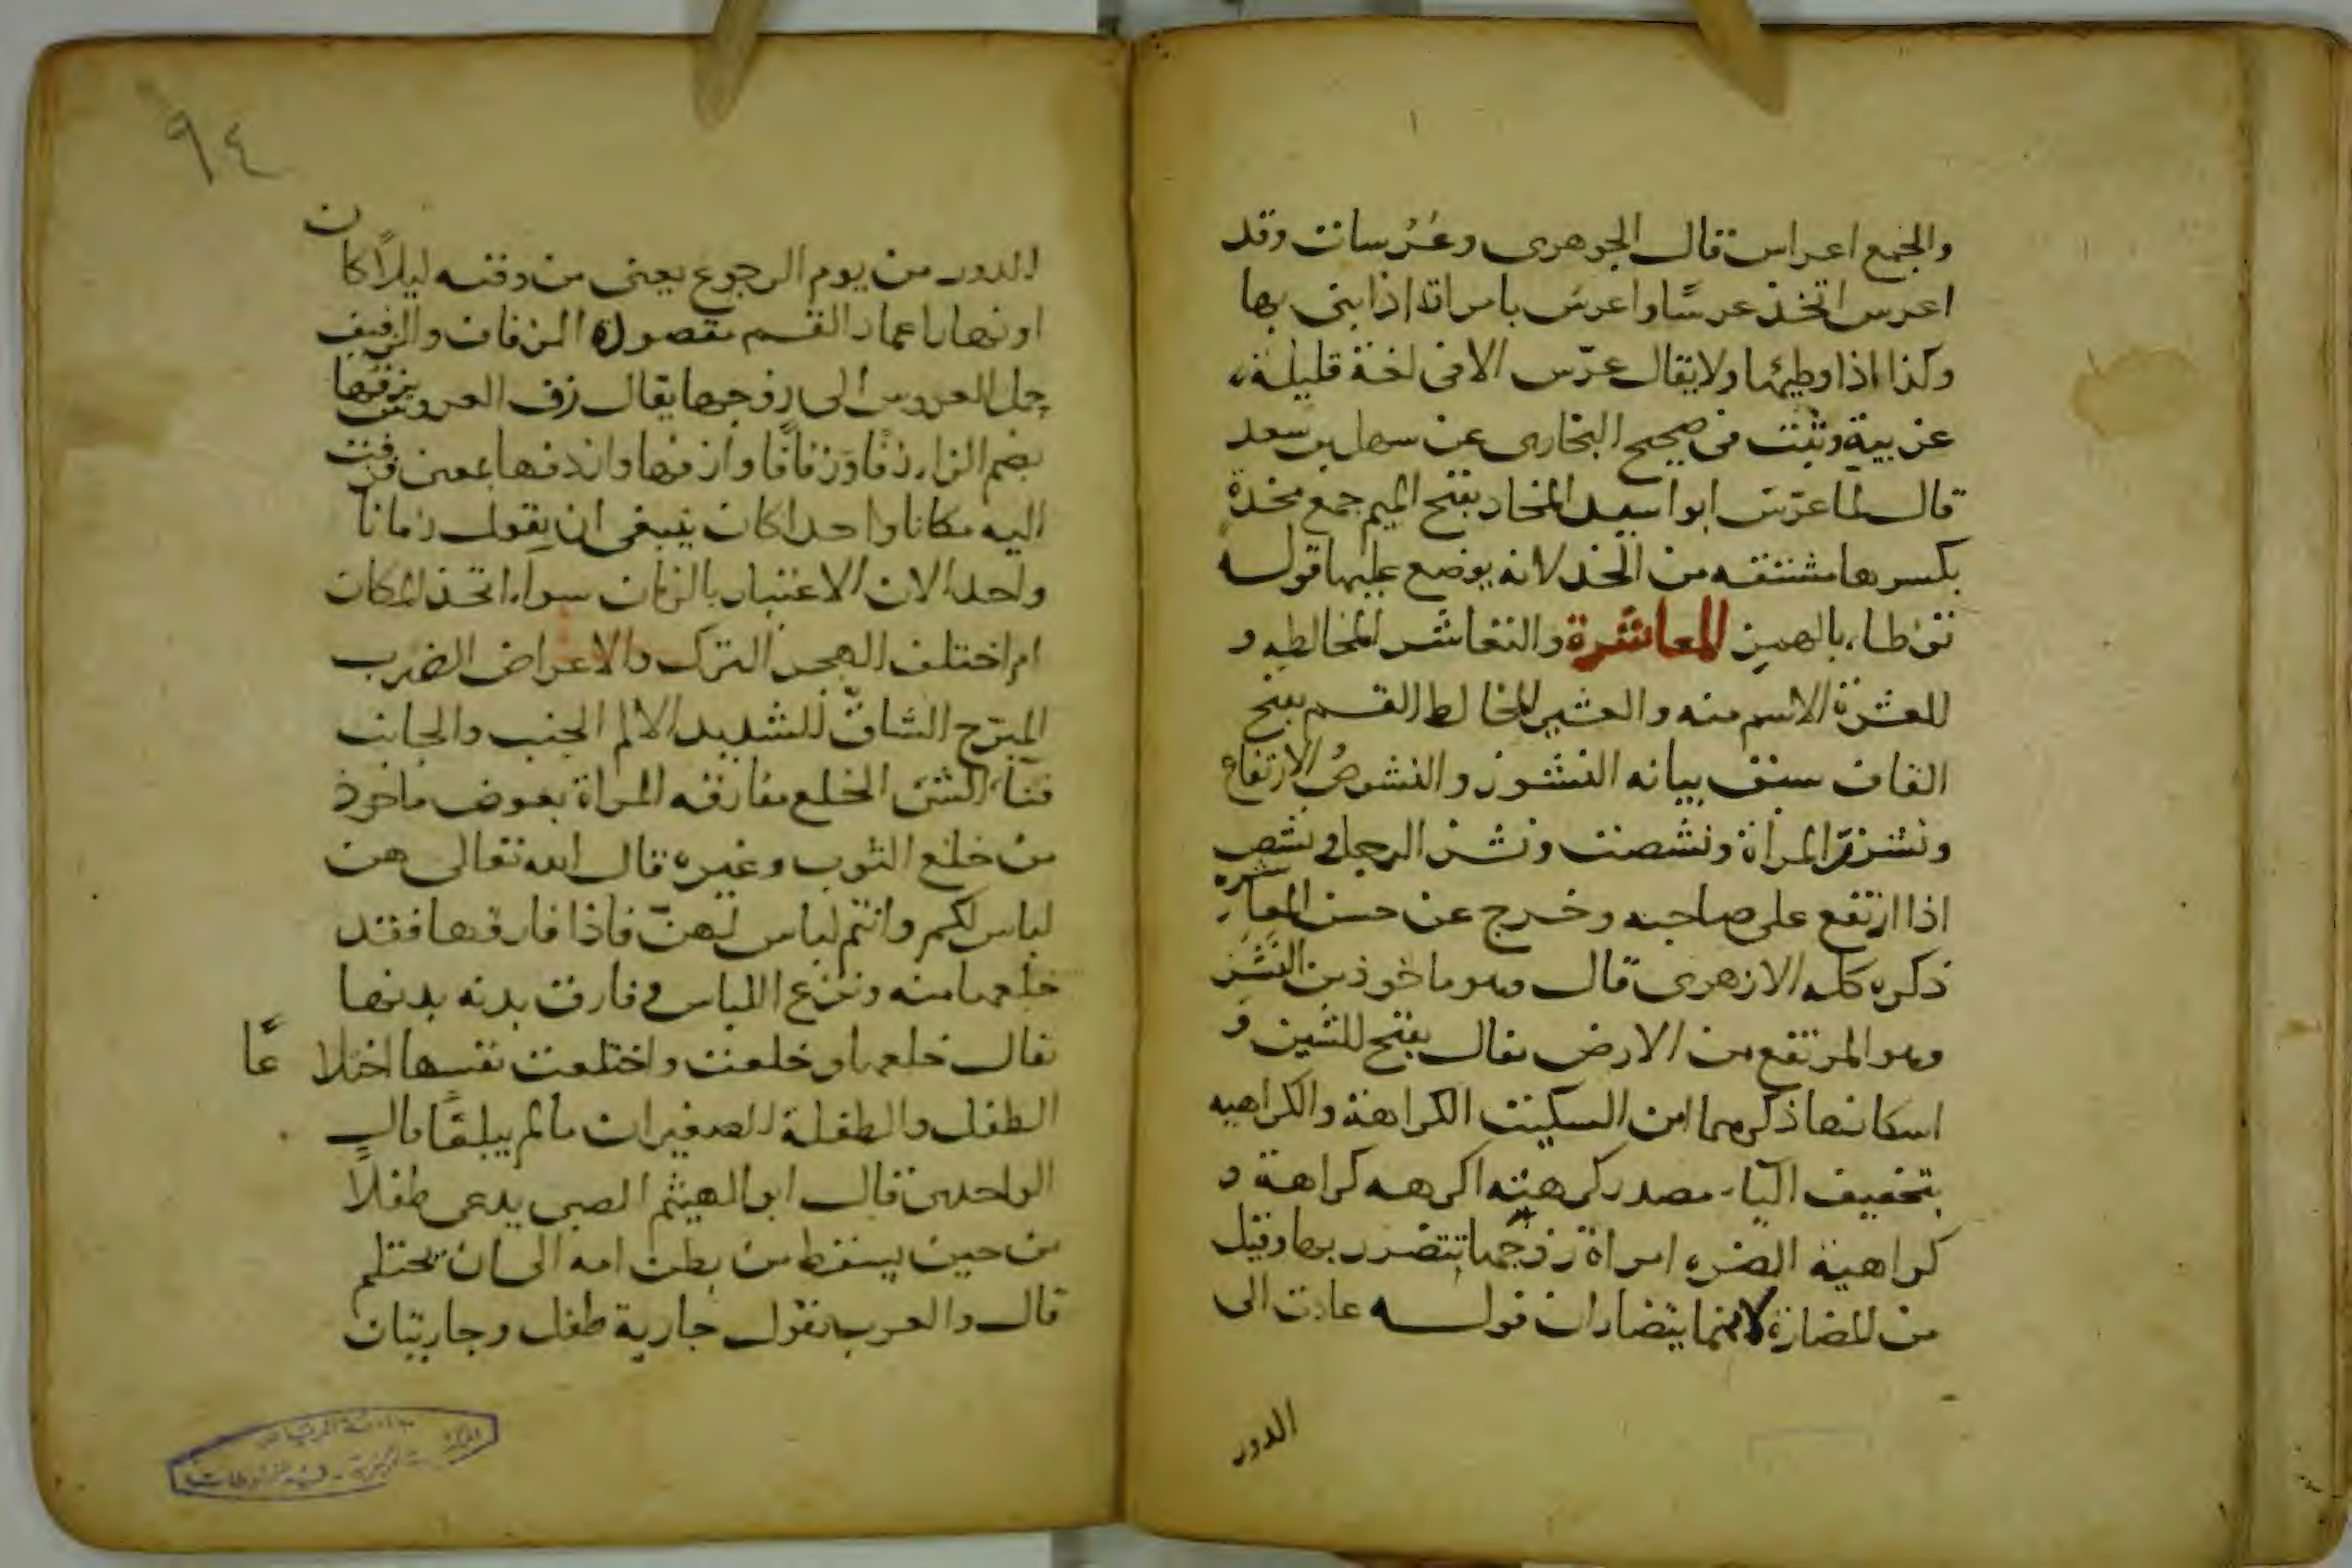 والجمع اعراس قال الجوهرى وعُرُسات وقد
اعرس اتخذ عرسًا واعرس بامراته اذا بنى بها
وكذا اذا وطيها ولا يقال عرّس الا فى لغة قليلة
غريبة وثبت فى صحيح البخارى عن سهل بن سعد
قال لما عرّس ابو اسيد المخاد بفتح الميم جمع مخدة
بكسرها مشتقه من الخد لانه يوضع عليها قوله
توطا بالهمز المعاشرة والتعاشر المخالطه و
العشرة الاسم منه والعشير المخالط القسم بفتح
القاف سبق بيانه النشوز والنشوص الارتفاع
ونشزت المراة ونشصت ونشز الرجل ونشص
اذا ارتفع على صاحبه وخرج عن حسن المعاشره
ذكره كله الازهرى قال وهو ماخوذ من النشز
وهو المرتفع من الارض يقال بفتح الشين و
اسكانها ذكرهما ابن السكيت الكراهة والكراهيه
بتخفيف اليا مصدر كرهته اكرهه كراهة و
كراهية الضره امراة زوجها تتضرر بها وقيل
من المضارة لانهما يتضاران قوله عادت الى
الدور
٩٤
الدور من يوم الرجوع يعنى من وقته ليلًا كان
او نهارا عماد القسم مقصوده الزفاف والزفيف
حمل العروس الى زوجها يقال زف العروس يزفها
بضم الزاى زفًا وزفافًا وازفها وازدفها بمعنى زفت
اليه مكانا واحدا كان ينبغى ان يقول زمانا
واحدا لان الاعتبار بالزمان سواء اتحد المكان
ام اختلف الهجر الترك والاعراض الضرب
المبرّح الشاقّ الشديد الالم الجنب والجانب
فناء الشى الخلع مفارقه المراة بعوض ماخوذ
من خلع الثوب وغيره قال الله تعالى هن
لباس لكم وانتم لباس لهنّ فاذا فارقها فقد
خلعها منه ونزع اللباس وفارق بدنه بدنها
يقال خلعها وخلعت واختلعت نفسها اختلاعًا
الطفل والطفلة الصغيران ما لم يبلغا قال
الواحدى قال ابو الهيثم الصبى يدعى طفلًا
من حين يسقط من بطن امه الى ان يحتلم
قال والعرب تقول جارية طفل وجاريتان